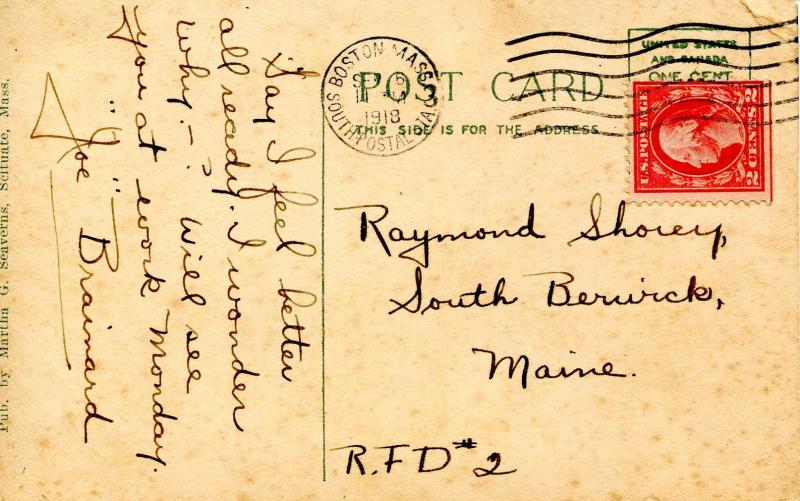 POST CARD
THIS SIDE IS FOR THE ADDRESS
UNITED STATES
AND CANADA
ONE CENT
BOSTON MASS.
1918
SOUTH POSTAL STA.
U.S. POSTAGE
2 CENTS 2
Say I feel better
all ready. I wonder
why. - ? Will see
you at work Monday.
"Joe" Brainard
Raymond Shorey,
South Berwick,
Maine.
R.F.D #2
Pub. by Martha G. Seaverns, Scituate, Mass.